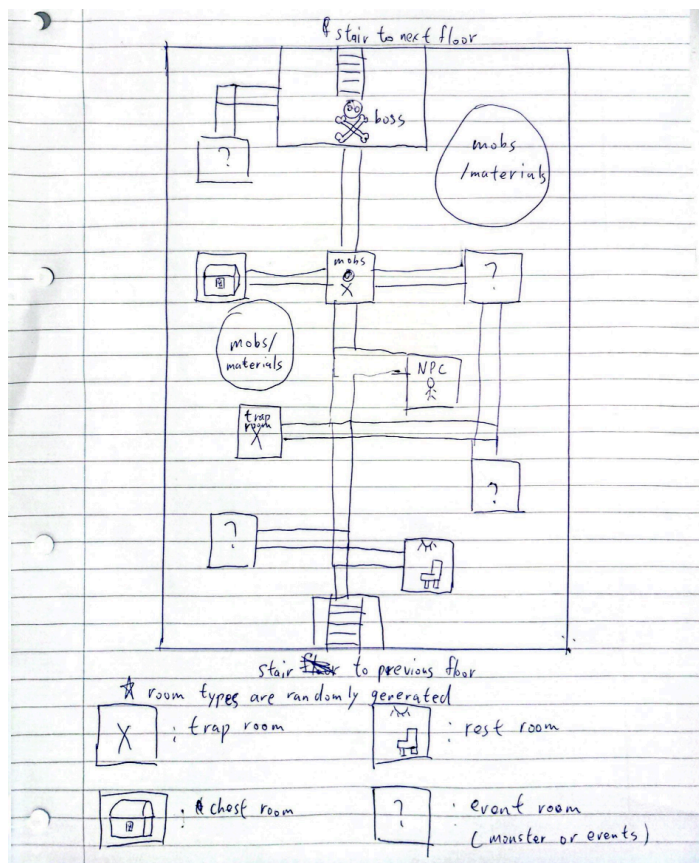 stair to next floor
boss
?
mobs
/materials
mobs
X
?
mobs/
materials
NPC
trap
room
X
?
?
stair floor to previous floor
☆ room types are randomly generated
X : trap room
: rest room
: chest room
? : event room
(monster or events)